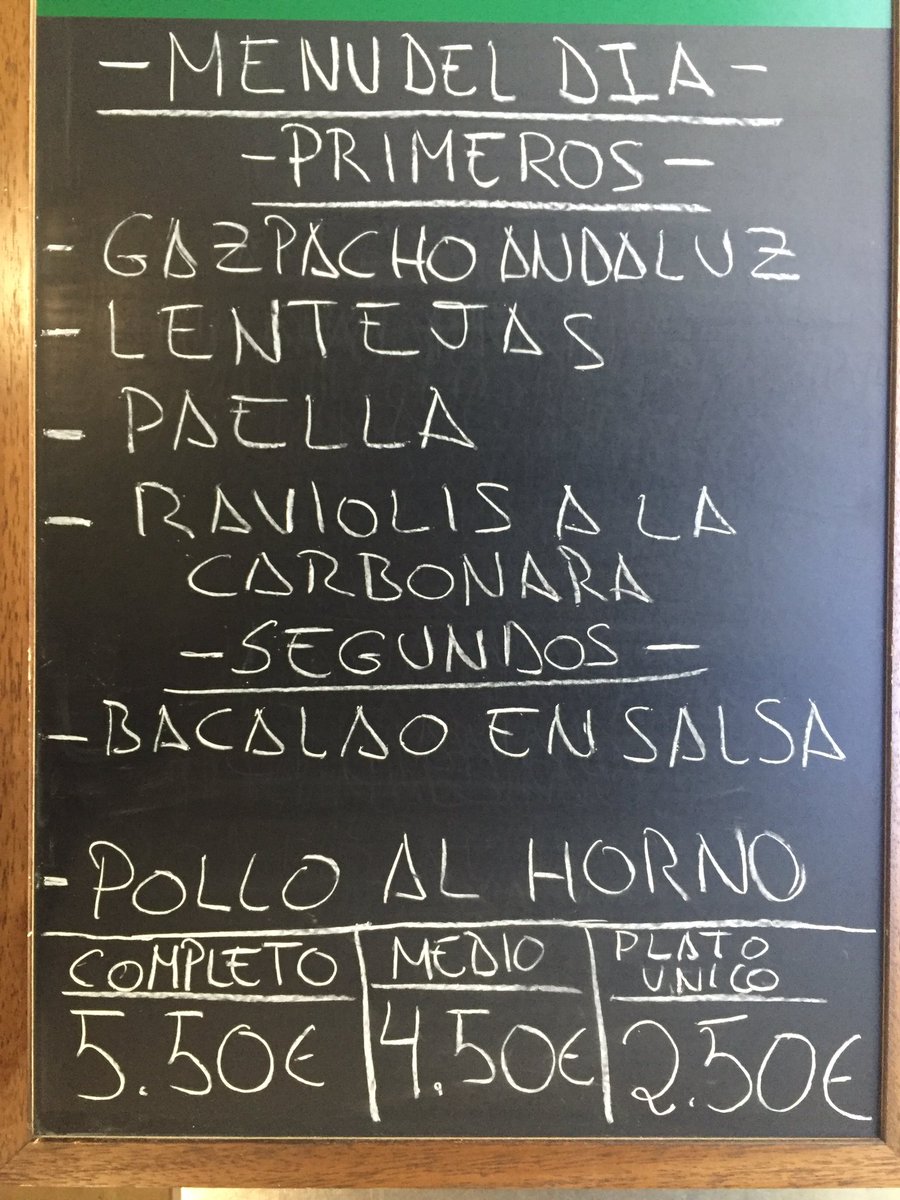 - MENU DEL DIA -
- PRIMEROS -
- GAZPACHO ANDALUZ
- LENTEJAS
- PAELLA
- RAVIOLIS A LA
CARBONARA
- SEGUNDOS -
- BACALAO EN SALSA
- POLLO AL HORNO
COMPLETO
5.50€
MEDIO
4.50€
PLATO
UNICO
2.50€